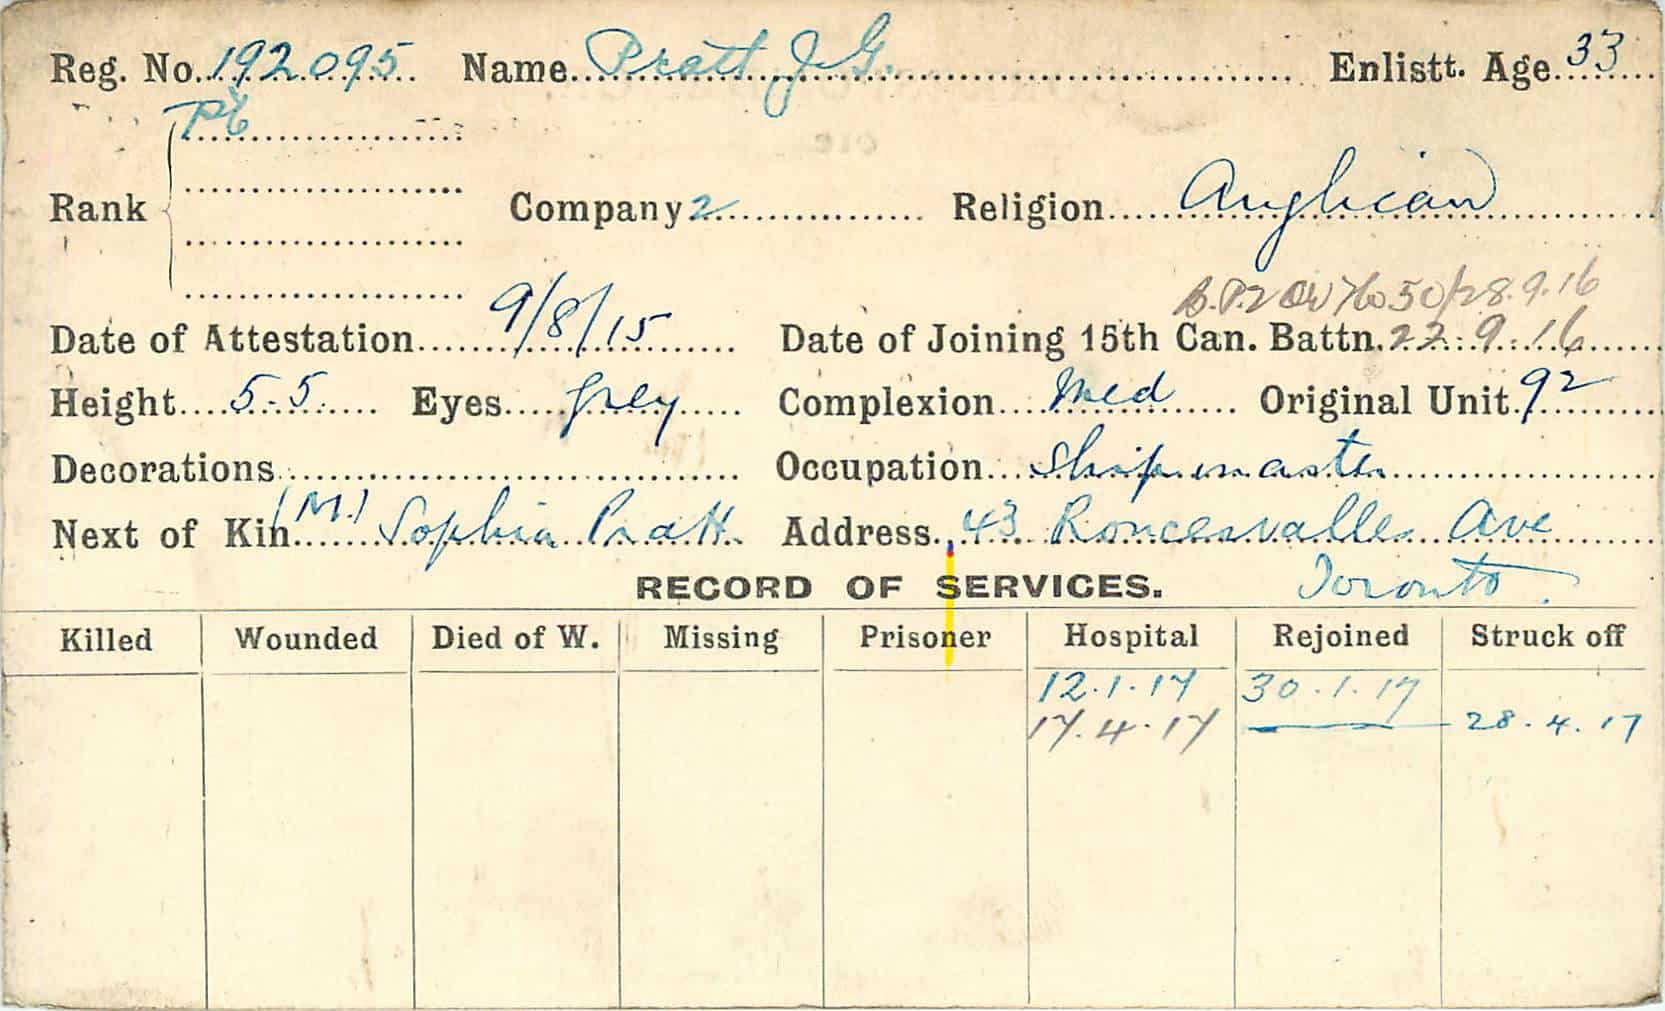 Reg. No. 192095 Name Pratt J.G. Enlistt. Age 33
Pte
Rank Company 2 Religion Anglican
28.9.16
Date of Attestation 9/8/15 Date of Joining 15th Can. Battn. 22.9.16
Height 5.5 Eyes Grey Complexion Med Original Unit 92
Decorations Occupation Shipmaster
Next of Kin (M) Sophia Pratt Address 43 Roncesvalles Ave
Toronto
RECORD OF SERVICES.
Killed Wounded Died of W. Missing Prisoner Hospital Rejoined Struck off
12.1.17 30.1.17
17.4.17 28.4.17